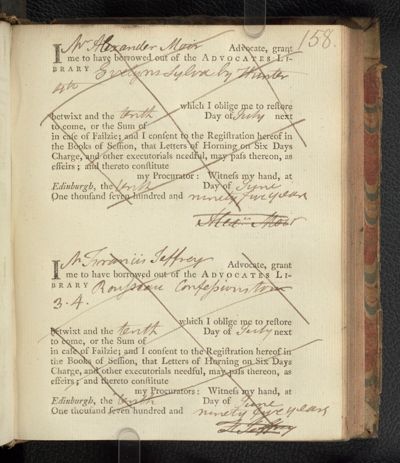 158.
I Mr Alexander Moir Advocate, grant
me to have borrowed out of the ADVOCATES LI-
BRARY Evelyns Sylva by Hunter
4to
which I oblige me to restore
betwixt and the tenth Day of July next
to come, or the Sum of
in case of Failzie; and I consent to the Registration hereof in
the Books of Session, that Letters of Horning on Six Days
Charge, and other executorials needful, may pass thereon, as
effeirs; and thereto constitute
my Procurators: Witness my hand, at
Edinburgh, the tenth Day of June
One thousand seven hundred and ninety five years
Alexr Moir
I Mr Francis Jeffrey Advocate, grant
me to have borrowed out of the ADVOCATES LI-
BRARY Rousseau Confessions tom
3. 4.
which I oblige me to restore
betwixt and the tenth Day of July next
to come, or the Sum of
in case of Failzie; and I consent to the Registration hereof in
the Books of Session, that Letters of Horning on Six Days
Charge, and other executorials needful, may pass thereon, as
effeirs; and thereto constitute
my Procurators: Witness my hand, at
Edinburgh, the tenth Day of June
One thousand seven hundred and ninety five years
F Jeffrey